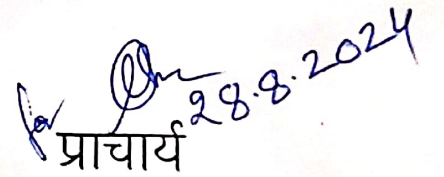 for 28.8.2024
प्राचार्य